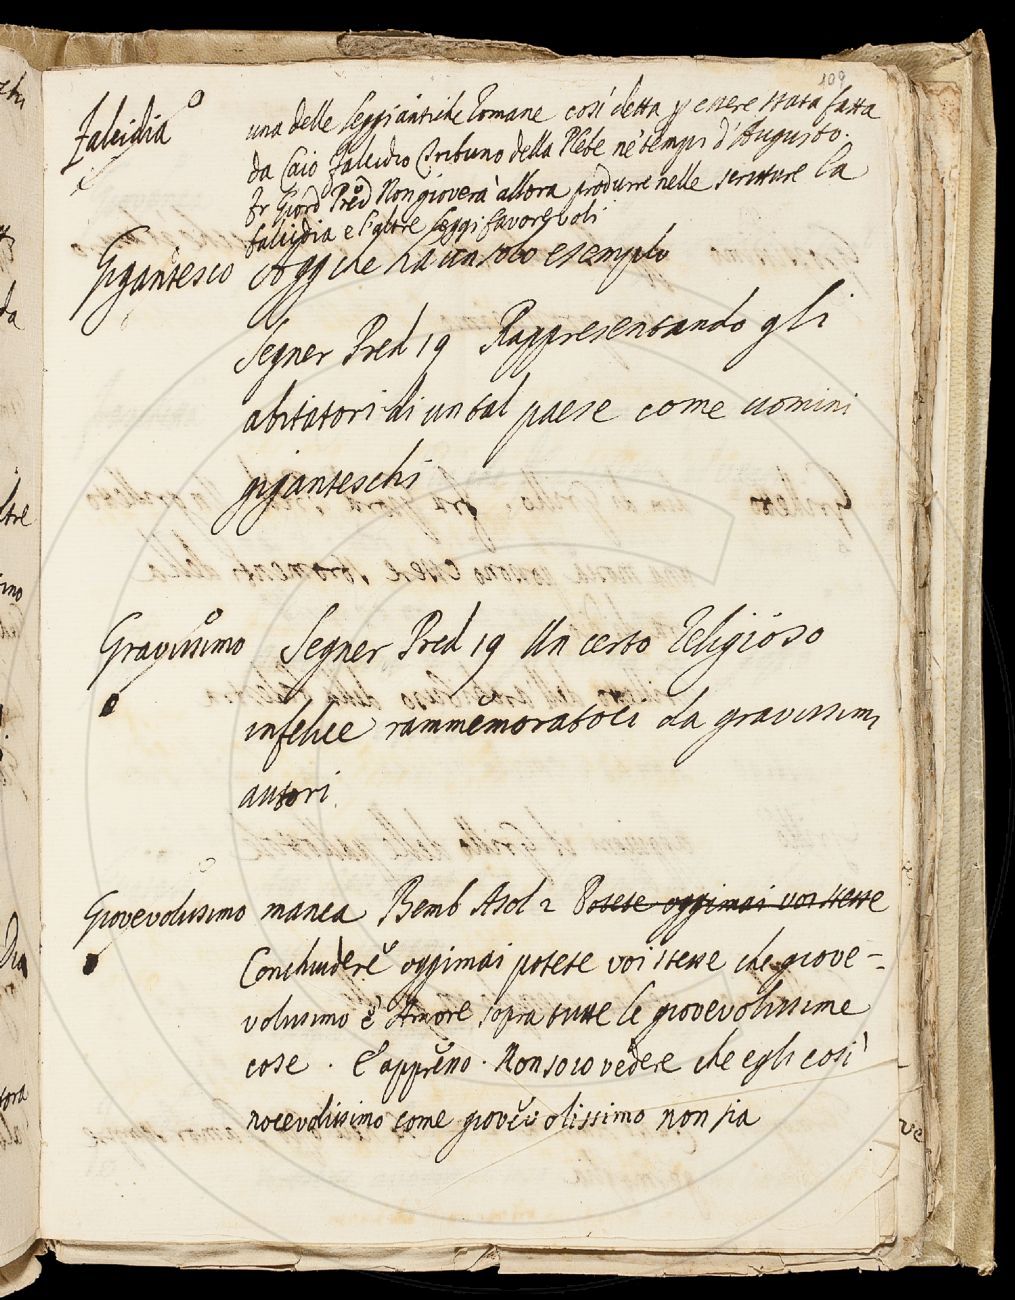 109
Falcidia una delle leggi antiche Romane così detta p essere stata fatta
da Caio Falcidio Tribuno della Plebe ne' tempi d'Augusto.
Fr Giord Pred Non gioverà allora produrre nelle scritture la
falcidia e l'altre leggi favorevoli
Gigantesco Aggi che ha un solo esemplo
Segner Pred 19 Rappresentando gli
abitatori di un tal paese come uomini
giganteschi
Gravissimo Segner Pred 19 Un certo Religioso
infelice rammemoratoci da gravissimi
autori
Giovevolissimo manca Bemb Asol 2 Potete oggimai voi stesse
Conchiudere oggimai potete voi stesse che giove-
volissimo è Amore sopra tutte le giovevolissime
cose . E appreno . Non so io vedere che egli così
nocevolissimo come giovevolissimo non sia